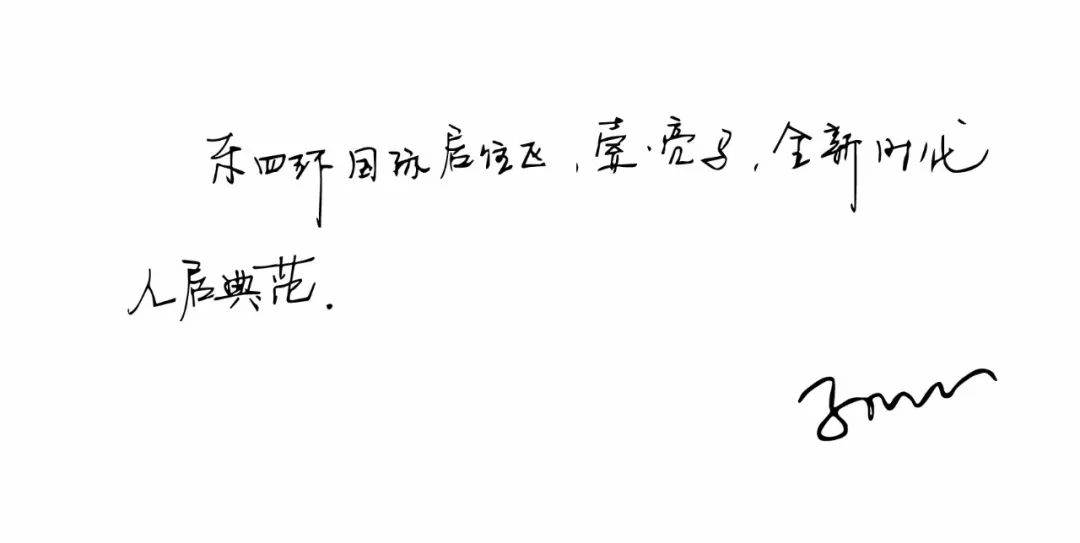 东四环国际居住区，嘉·亮马，全新时代
人居典范.